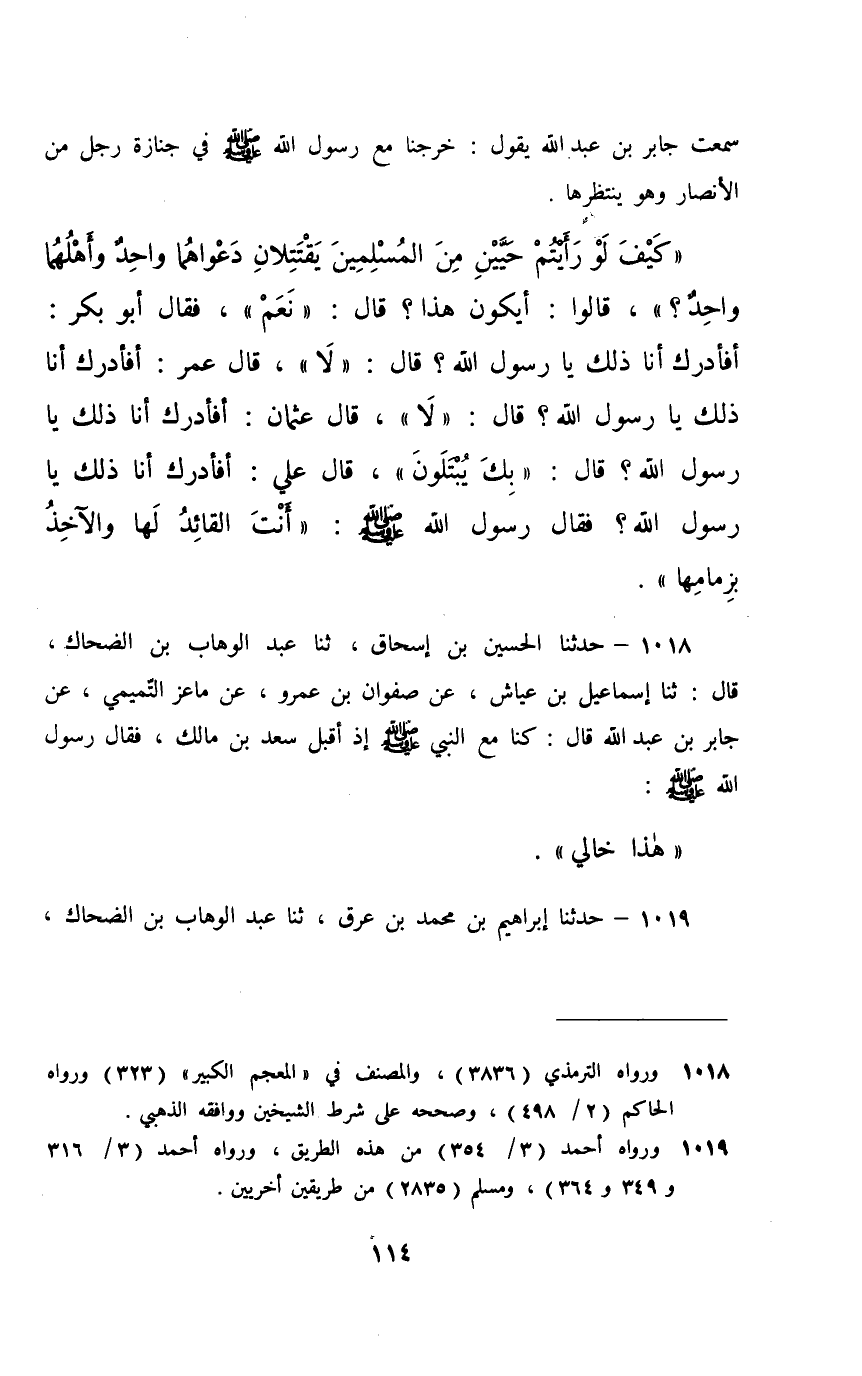 سمعت جابر بن عبد الله يقول : خرجنا مع رسول الله ﷺ في جنازة رجل من
الأنصار وهو ينتظرها .
« كَيْفَ لَوْ رَأَيْتُمْ حَيَّيْنِ مِنَ المُسْلِمِينَ يَقْتَتِلانِ دَعْواهُما واحِدٌ وأَهْلُهُما
واحِدٌ ؟ » ، قالوا : أيكون هذا ؟ قال : « نَعَمْ » ، فقال أبو بكر :
أفأدرك أنا ذلك يا رسول الله ؟ قال : « لَا » ، قال عمر : أفأدرك أنا
ذلك يا رسول الله ؟ قال : « لَا » ، قال عثمان : أفأدرك أنا ذلك يا
رسول الله ؟ قال : « بِكَ يُبْتَلَونَ » ، قال علي : أفأدرك أنا ذلك يا
رسول الله ؟ فقال رسول الله ﷺ : « أَنْتَ القائِدُ لَها والآخِذُ
بِزِمامِها » .
١٠١٨ – حدثنا الحسين بن إسحاق ، ثنا عبد الوهاب بن الضحاك ،
قال : ثنا إسماعيل بن عياش ، عن صفوان بن عمرو ، عن ماعز التّميمي ، عن
جابر بن عبد الله قال : كنا مع النبي ﷺ إذ أقبل سعد بن مالك ، فقال رسول
الله ﷺ :
« هٰذا خالي » .
١٠١٩ – حدثنا إبراهيم بن محمد بن عرق ، ثنا عبد الوهاب بن الضحاك ،
١٠١٨ ورواه الترمذي (٣٨٣٦) ، والمصنف في «المعجم الكبير» (٣٢٣) ورواه
الحاكم (٢/ ٤٩٨) ، وصححه على شرط الشيخين ووافقه الذهبي .
١٠١٩ ورواه أحمد (٣/ ٣٥٤) من هذه الطريق ، ورواه أحمد (٣/ ٣١٦
و ٣٤٩ و ٣٦٤) ، ومسلم (٢٨٣٥) من طريقين أخريين .
١١٤